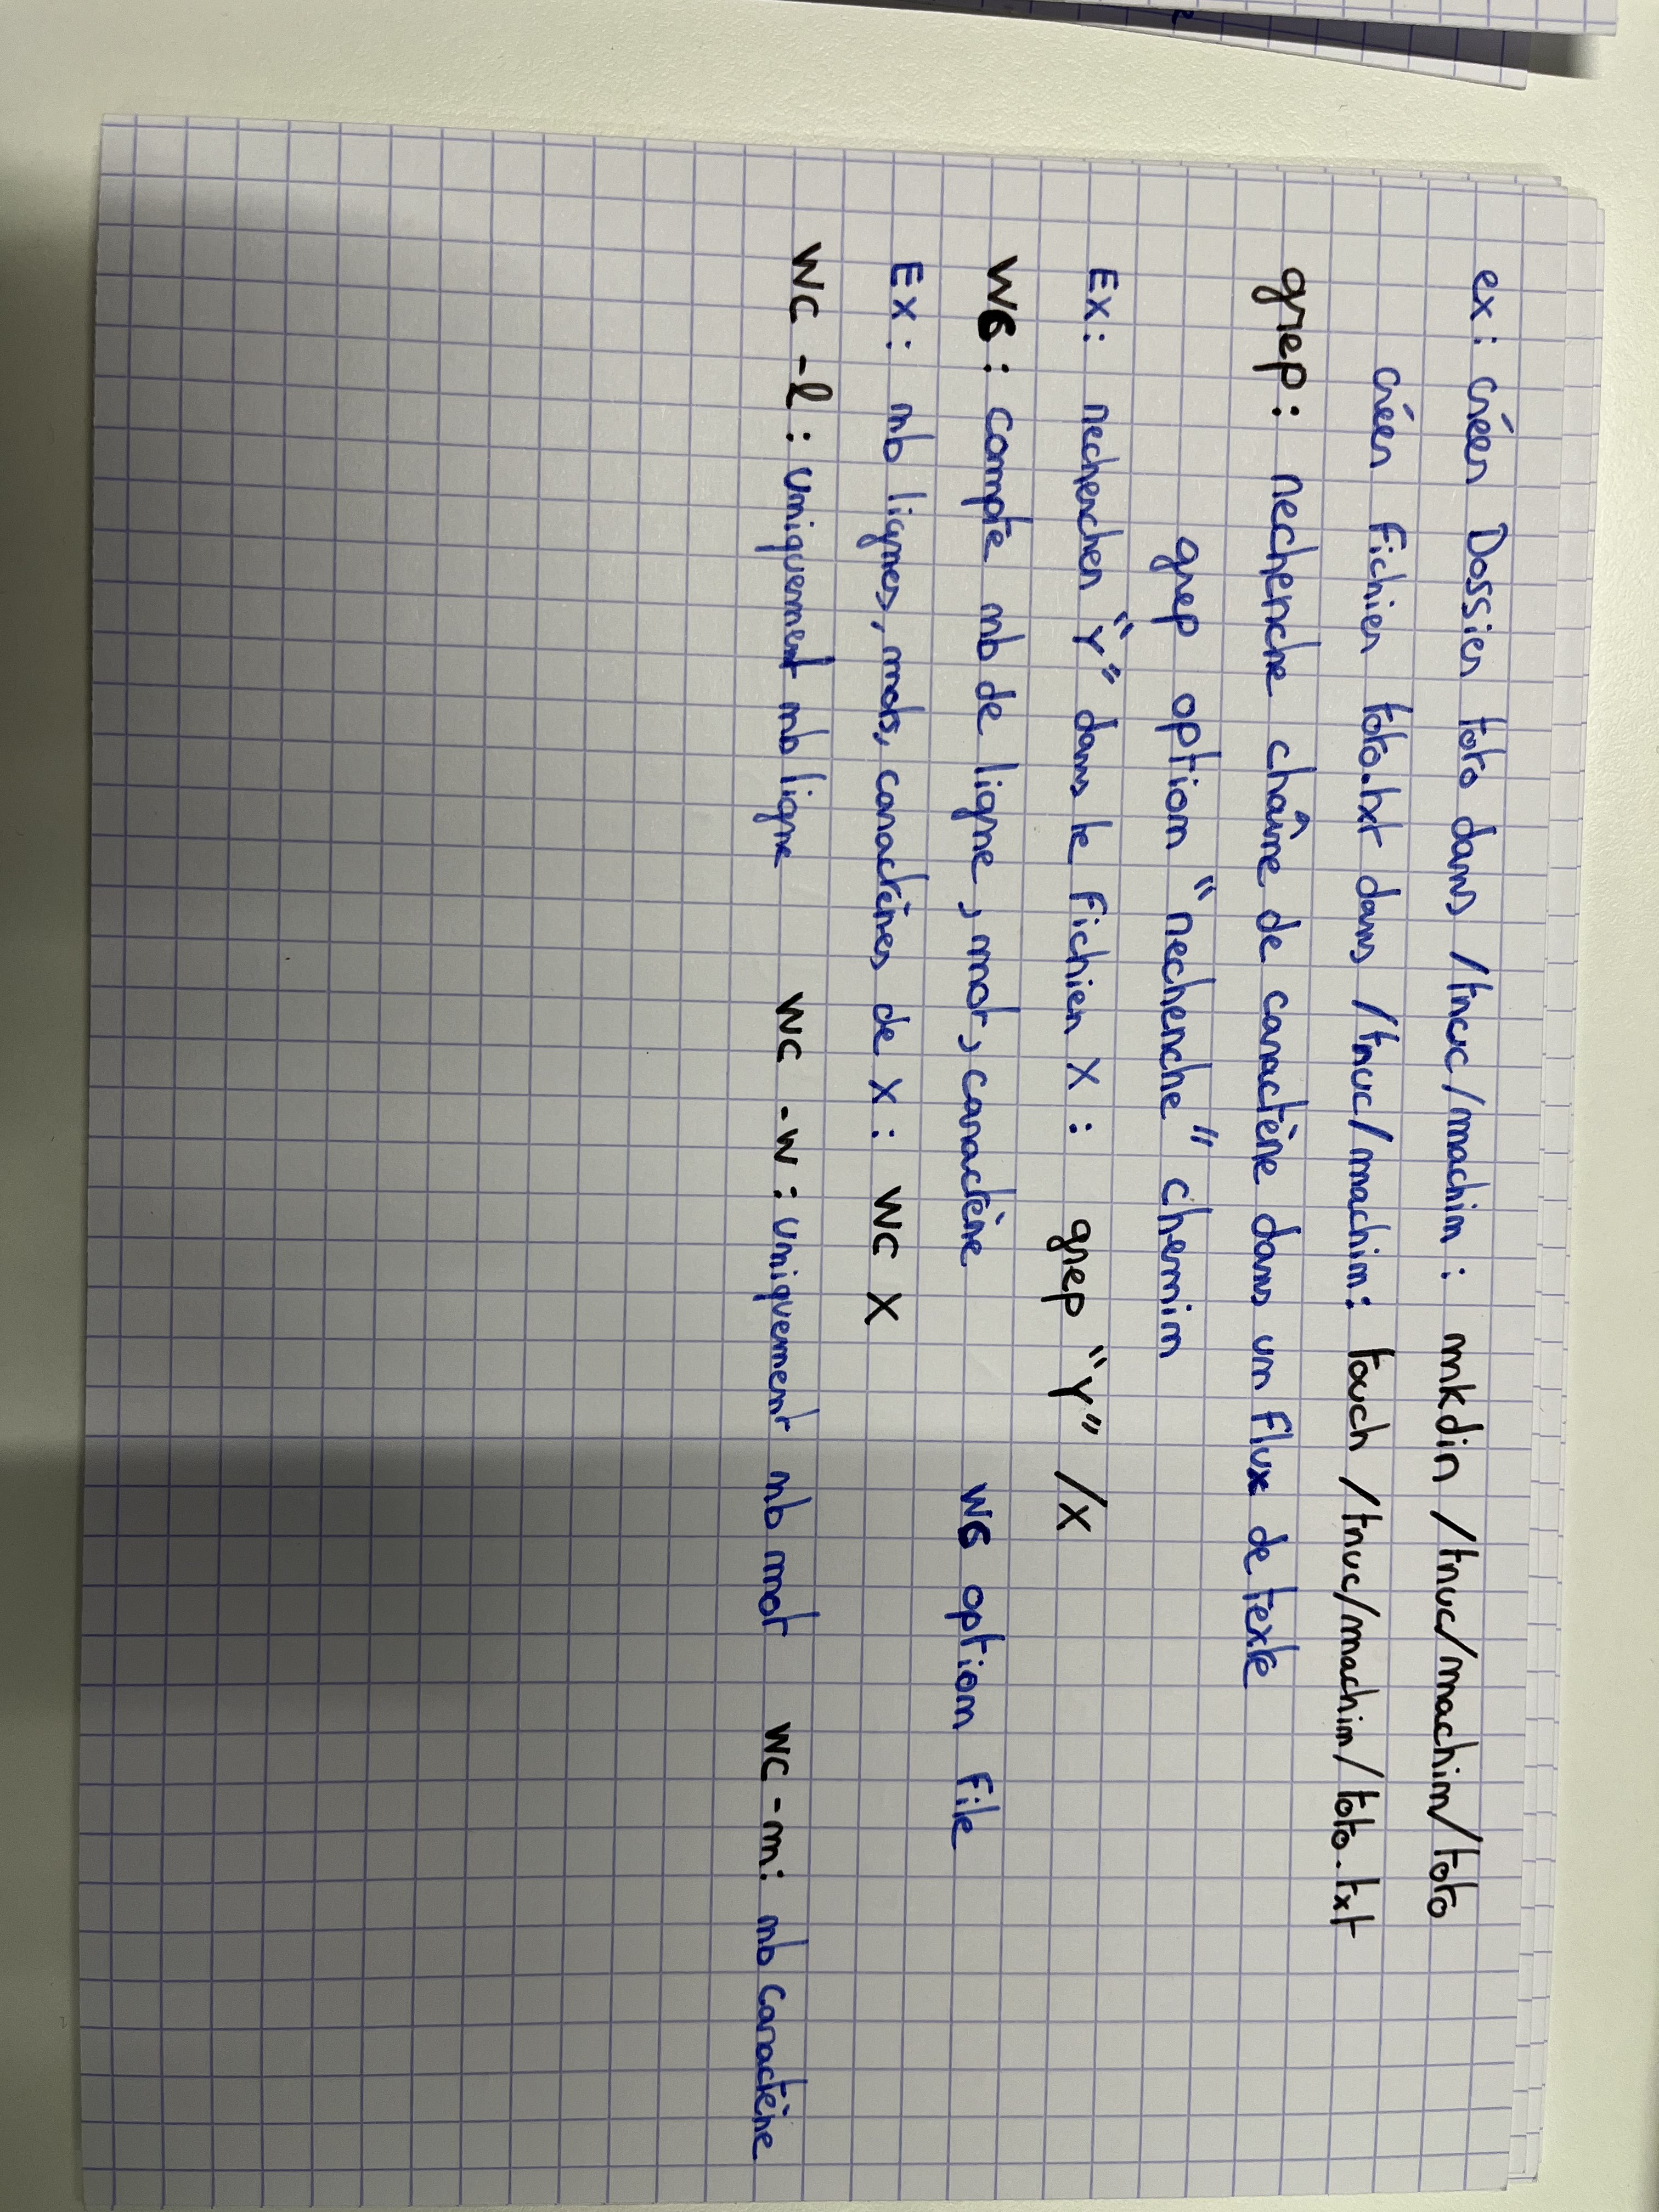 ex : créer Dossier toto dans /truc/machin : mkdir /truc/machin/toto
créer Fichier toto.txt dans /truc/machin : touch /truc/machin/toto.txt
grep : recherche chaîne de caractère dans un flux de texte
grep option "recherche" chemin
Ex : rechercher "Y" dans le Fichier X : grep "Y" /X
WC : compte nb de ligne, mot, caractère WC option File
Ex : nb lignes, mots, caractères de X : WC X
WC -l : uniquement nb ligne WC -w : uniquement nb mot WC -m : nb caractère